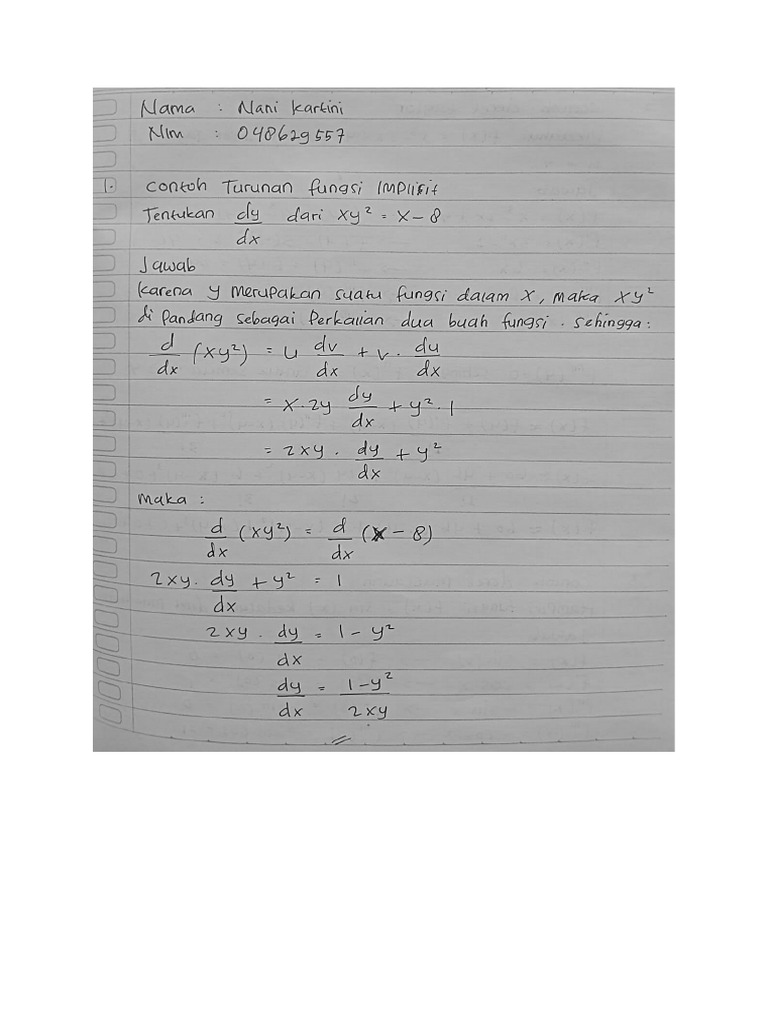 Nama : Nani Kartini
NIM : 048629557
1. Contoh Turunan fungsi IMPlisit
Tentukan dy/dx dari xy² = x - 8
Jawab
Karena y merupakan suatu fungsi dalam x, maka xy²
di Pandang sebagai Perkalian dua buah fungsi. sehingga:
d/dx (xy²) = u dv/dx + v. du/dx
= x. 2y dy/dx + y². 1
= 2xy. dy/dx + y²
Maka :
d/dx (xy²) = d/dx (x - 8)
2xy. dy/dx + y² = 1
2xy. dy/dx = 1 - y²
dy/dx = 1-y²/2xy